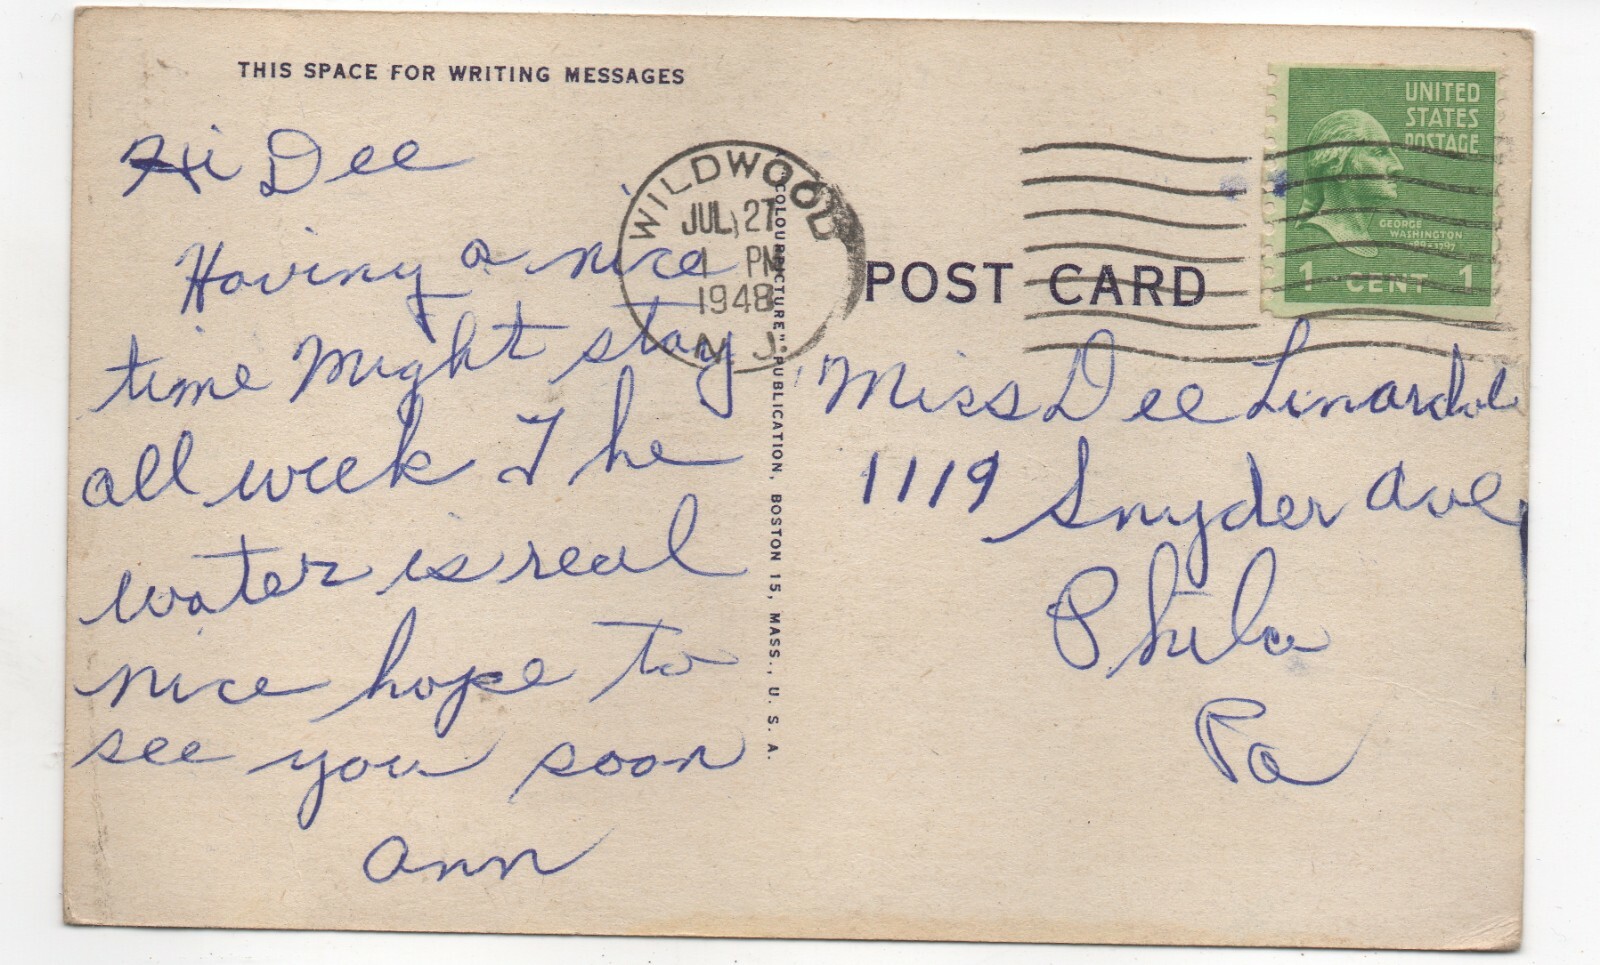 THIS SPACE FOR WRITING MESSAGES
Hi Dee
Having a nice
time Might stay
all week The
water is real
nice hope to
see you soon
Ann
WILDWOOD
JUL 27
1 PM
1948
N. J.
"COLOURPICTURE" PUBLICATION, BOSTON 15, MASS., U. S. A.
POST CARD
UNITED
STATES
POSTAGE
GEORGE
WASHINGTON
1789-1797
1 CENT 1
Miss Dee
1119 Snyder Ave
Phila
Pa